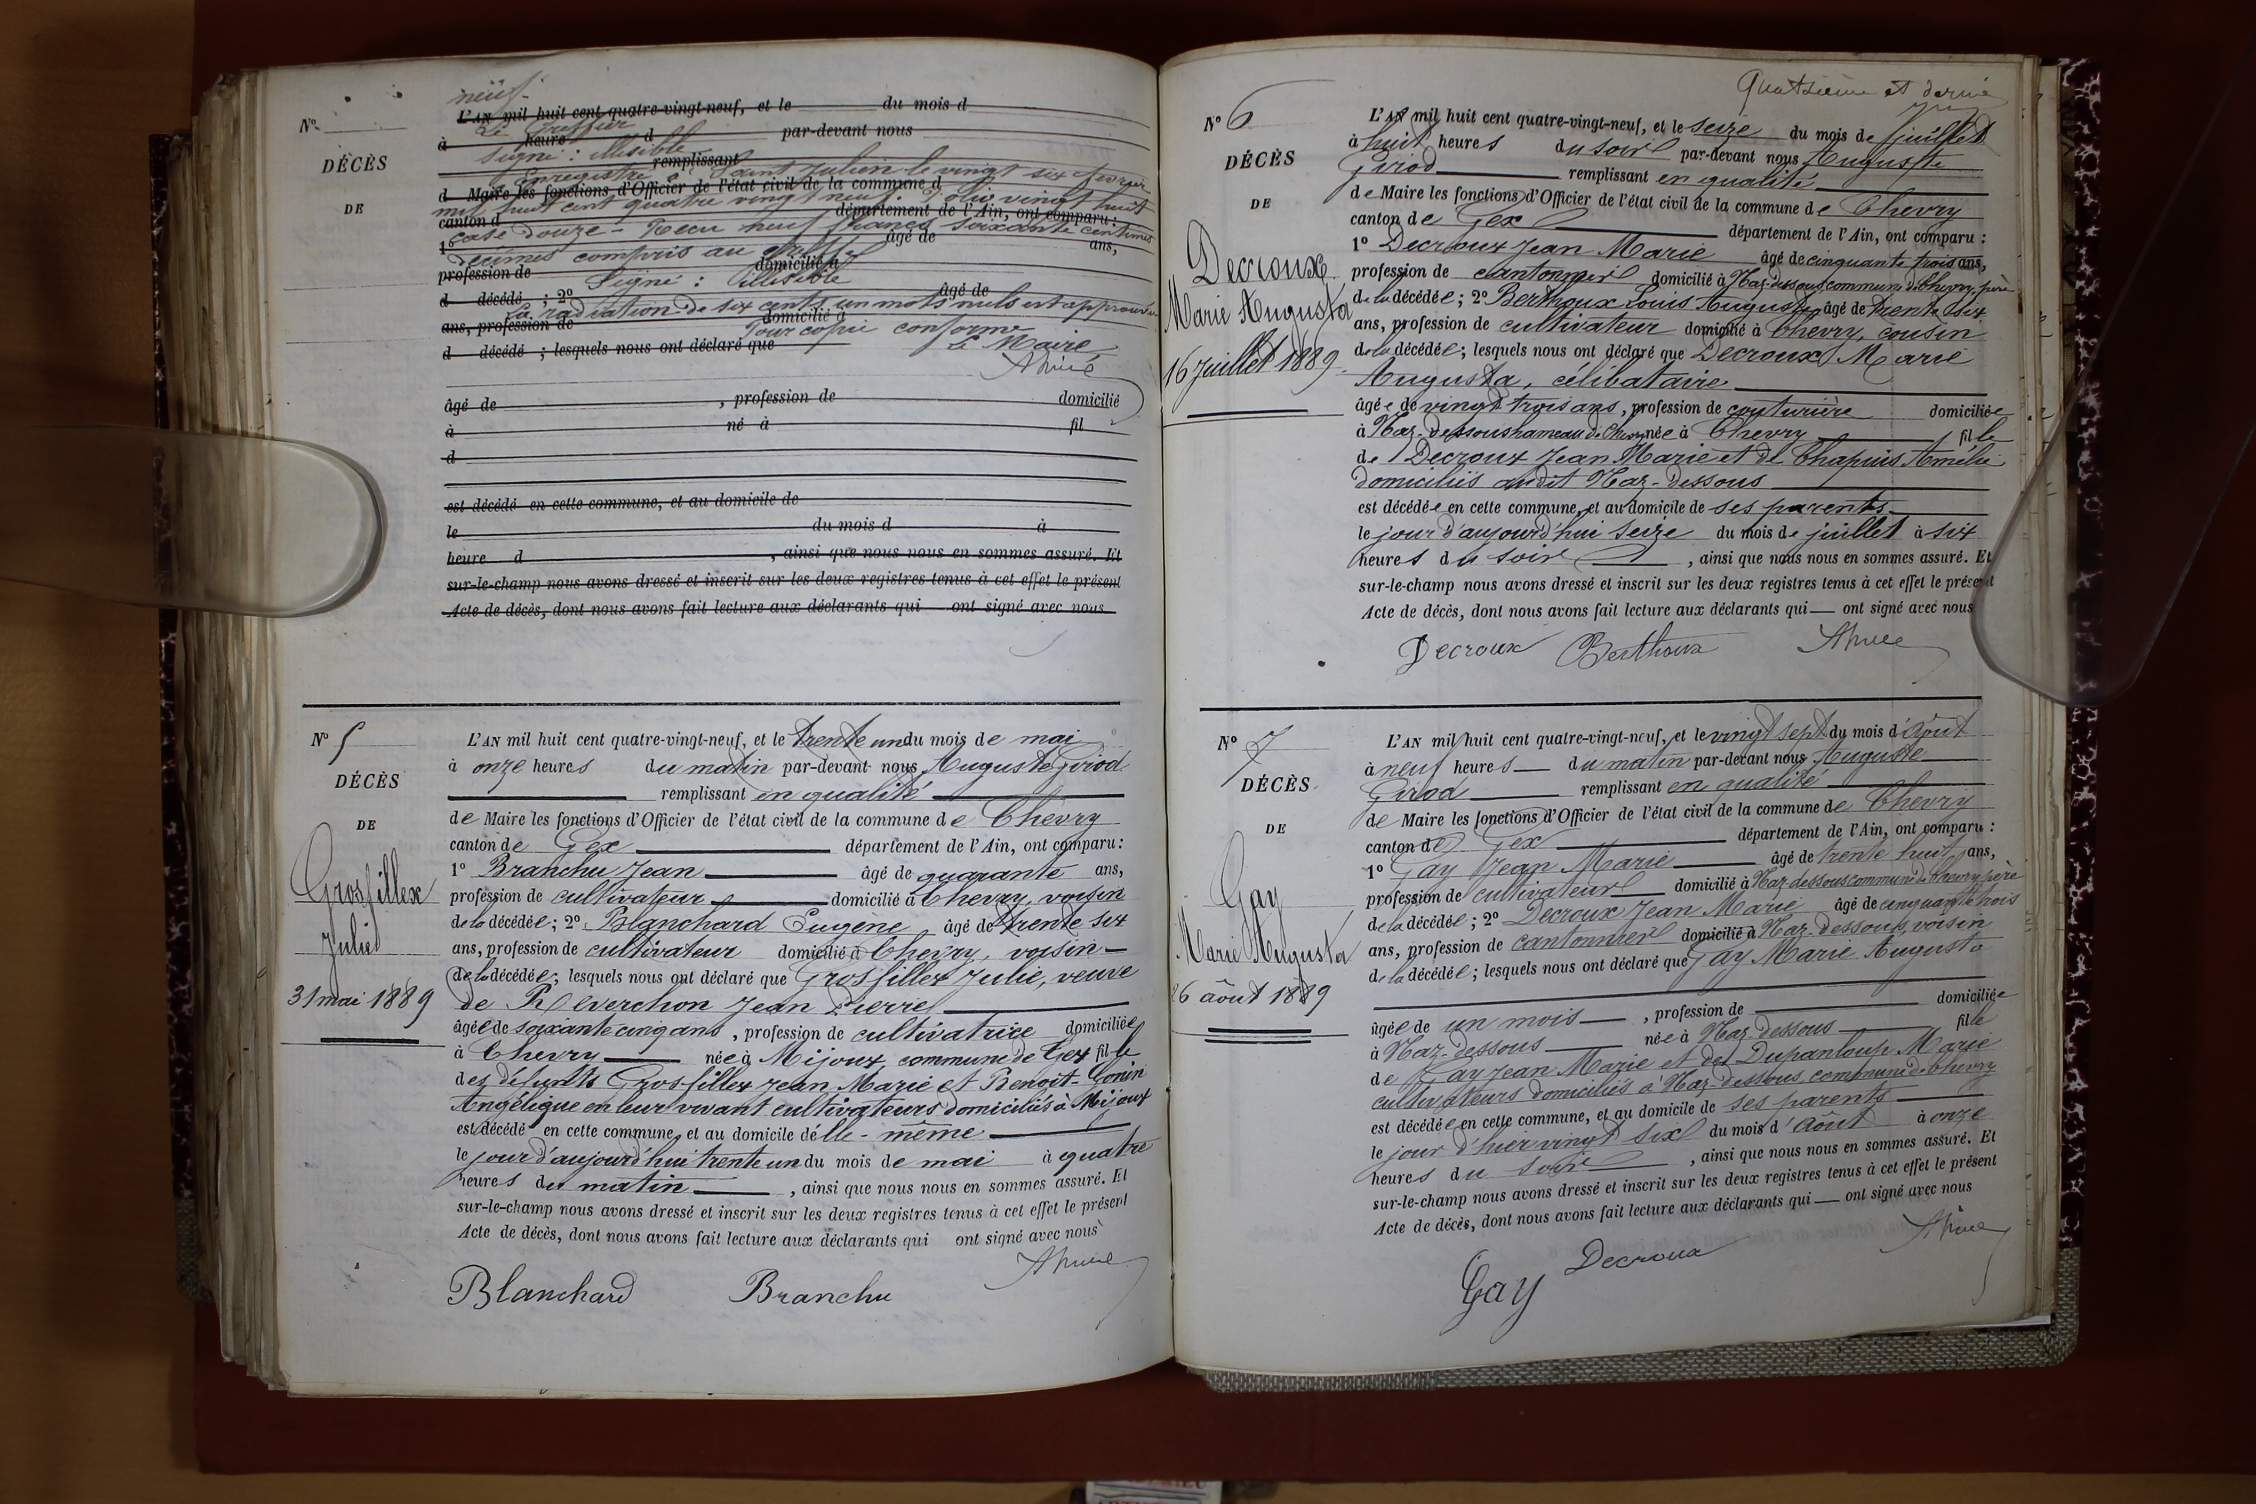 neuf.
Nº
DÉCÈS
DE
L'AN mil huit cent quatre-vingt-neuf, et le du mois d
Le Greffier
à heure d par-devant nous
Signé : illisible
remplissant
Enregistré à Saint Julien le vingt six fevrier
d Maire les fonctions d'Officier de l'état civil de la commune d
mil huit cent quatre vingt neuf. folio vingt huit
canton d département de l'Ain, ont comparu :
case douze - Recu neuf francs soixante centimes
1º âgé de ans,
decimes compris au
profession de domicilié à
Signé : illisible
d décédé ; 2º âgé de
La radiation de six cents un mots nuls est approuvée
ans, profession de domicilié à
Pour copie conforme
d décédé ; lesquels nous ont déclaré que
Le Maire
âgé de , profession de domicilié
à né à fil
d
est décédé en cette commune, et au domicile de
le du mois d à
heure d , ainsi que nous nous en sommes assuré. Et
sur-le-champ nous avons dressé et inscrit sur les deux registres tenus à cet effet le présent
Acte de décès, dont nous avons fait lecture aux déclarants qui ont signé avec nous
Nº 5
DÉCÈS
DE
Grosfillex
Julie
31 mai 1889
L'AN mil huit cent quatre-vingt-neuf, et le trente un du mois de mai
à onze heures du matin par-devant nous Auguste Girod
remplissant en qualité
de Maire les fonctions d'Officier de l'état civil de la commune de Chevry
canton de Gex département de l'Ain, ont comparu :
1º Branchu Jean âgé de quarante ans,
profession de cultivateur domicilié à Chevry, voisin
de la décédée ; 2º Blanchard Eugène âgé de trente six
ans, profession de cultivateur domicilié à Chevry, voisin
de la décédée ; lesquels nous ont déclaré que Grosfillex Julie, veuve
de Reverchon Jean Pierre
âgée de soixante cinq ans, profession de cultivatrice domiciliée
à Chevry née à Mijoux, commune de Gex fille
des défunts Grosfillex Jean Marie et Benoit-Gonin
Angélique en leur vivant cultivateurs domiciliés à Mijoux
est décédé en cette commune, et au domicile d'élle-même
le jour d'aujourd'hui trente un du mois de mai à quatre
heures du matin , ainsi que nous nous en sommes assuré. Et
sur-le-champ nous avons dressé et inscrit sur les deux registres tenus à cet effet le présent
Acte de décès, dont nous avons fait lecture aux déclarants qui ont signé avec nous
Blanchard Branchu
Quatrième et dernie
Nº 6
DÉCÈS
DE
Decroux
Marie Augusta
16 juillet 1889
L'AN mil huit cent quatre-vingt-neuf, et le seize du mois de juillet
à huit heures du soir par-devant nous Auguste
Girod remplissant en qualité
de Maire les fonctions d'Officier de l'état civil de la commune de Chevry
canton de Gex département de l'Ain, ont comparu :
1º Decroux Jean Marie âgé de cinquante trois ans,
profession de cantonnier domicilié à Naz-dessous commune de Chevry, père
de la décédée ; 2º Berthoux Louis Auguste âgé de trente six
ans, profession de cultivateur domicilié à Chevry, cousin
de la décédée ; lesquels nous ont déclaré que Decroux Marie
Augusta, célibataire
âgée de vingt trois ans, profession de couturière domiciliée
à Naz-dessous hameau de Chevry née à Chevry fille
de Decroux Jean Marie et de Chapuis Amélie
domiciliés audit Naz-dessous
est décédée en cette commune, et au domicile de ses parents
le jour d'aujourd'hui seize du mois de juillet à six
heures du soir , ainsi que nous nous en sommes assuré. Et
sur-le-champ nous avons dressé et inscrit sur les deux registres tenus à cet effet le présent
Acte de décès, dont nous avons fait lecture aux déclarants qui ont signé avec nous
Decroux Berthoux
Nº 7
DÉCÈS
DE
Gay
Marie Augusta
26 août 1889
L'AN mil huit cent quatre-vingt-neuf, et le vingt sept du mois d'août
à neuf heures du matin par-devant nous Auguste
Girod remplissant en qualité
de Maire les fonctions d'Officier de l'état civil de la commune de Chevry
canton de Gex département de l'Ain, ont comparu :
1º Gay Jean Marie âgé de trente huit ans,
profession de cultivateur domicilié à Naz dessous commune de Chevry, père
de la décédée ; 2º Decroux Jean Marie âgé de cinquante trois
ans, profession de cantonnier domicilié à Naz-dessous, voisin
de la décédée ; lesquels nous ont déclaré que Gay Marie Augusta
âgée de un mois , profession de domiciliée
à Naz-dessous née à Naz dessous fille
de Gay Jean Marie et de Dupanloup Marie
cultivateurs domiciliés à Naz-dessous, commune de Chevry
est décédée en cette commune, et au domicile de ses parents
le jour d'hier vingt six du mois d'août à onze
heures du soir , ainsi que nous nous en sommes assuré. Et
sur-le-champ nous avons dressé et inscrit sur les deux registres tenus à cet effet le présent
Acte de décès, dont nous avons fait lecture aux déclarants qui ont signé avec nous
Gay Decroux